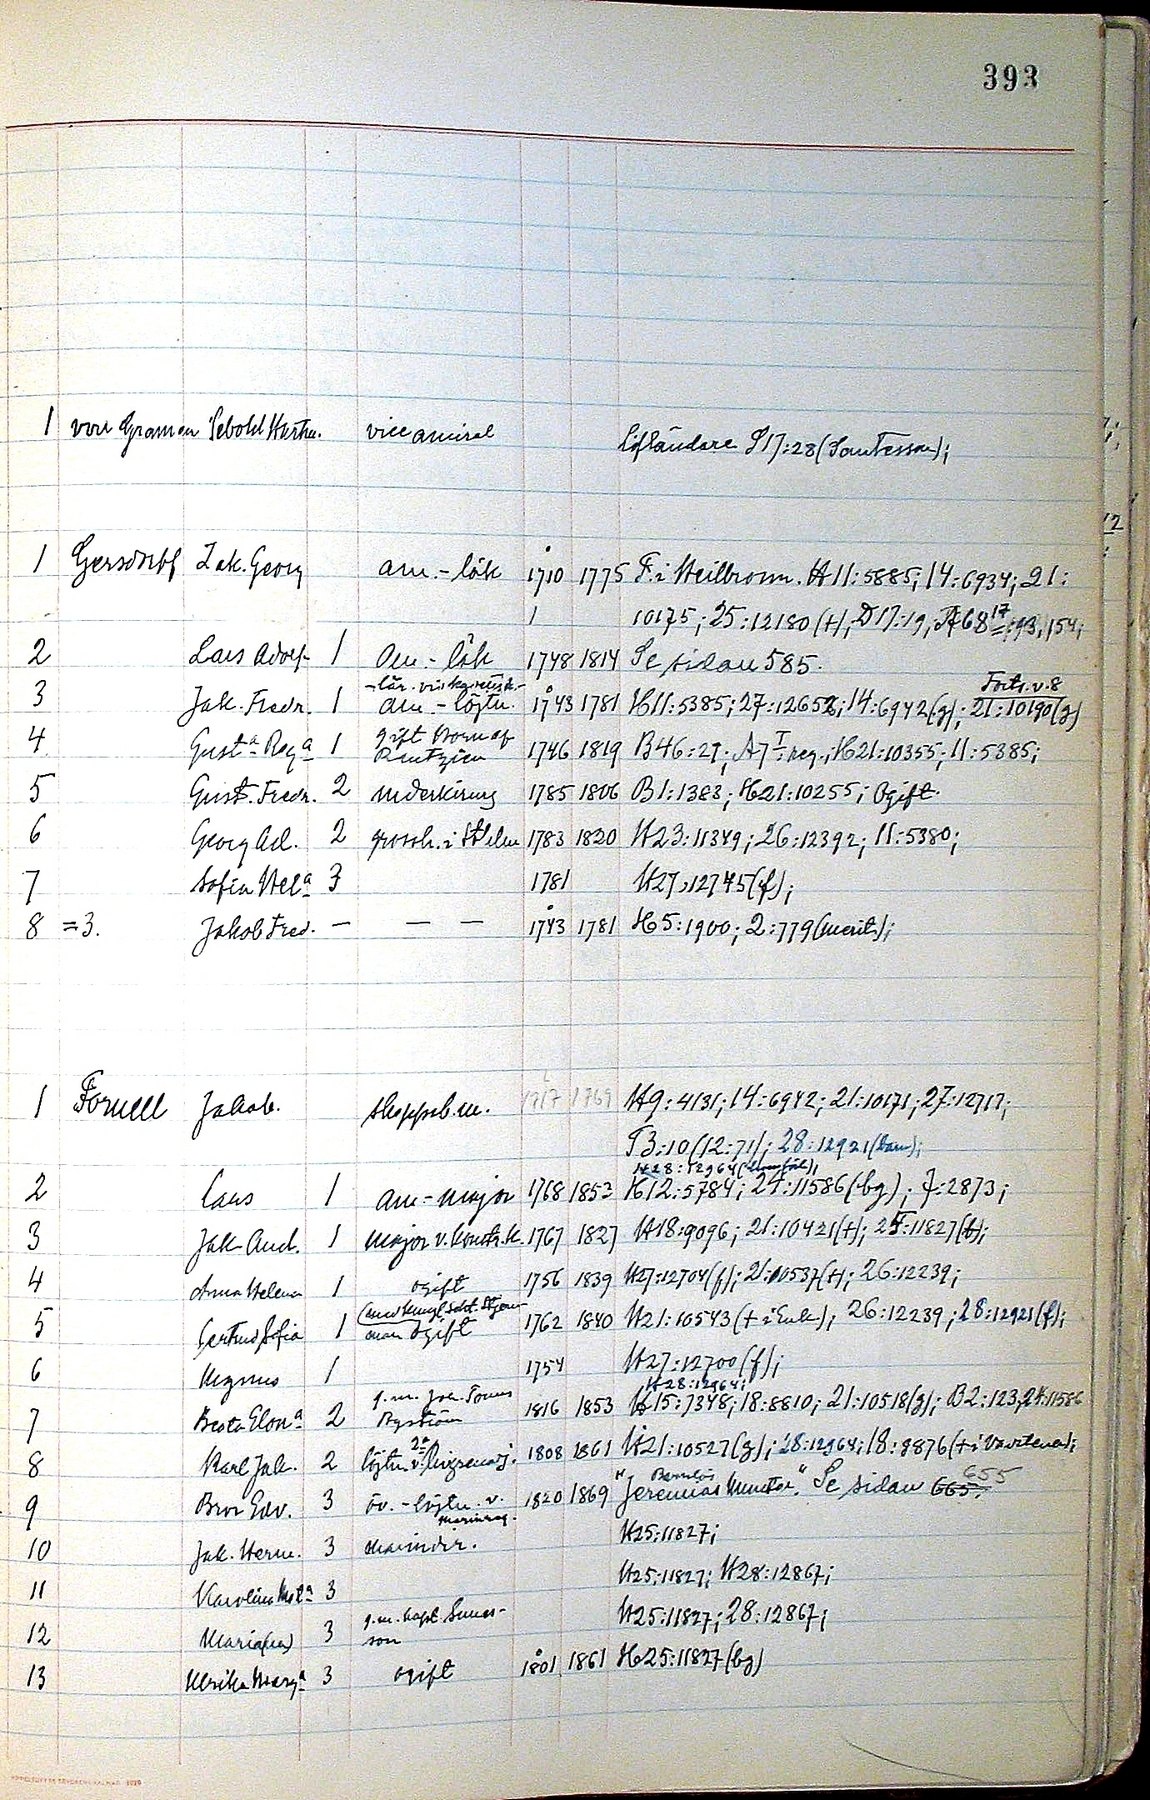 393
1 von Graman Sebold Hartm. viceamiral Lifländare S17:28 (Santesson);
1 Gersdorff Zak. Georg am.-läk 1710 1775 F. i Heilbronn. H11:5885; 14:6934; 21:
1 10175; 25:12180 (+); D17:19, 154;
2 Lars Adolf 1 Am-läk 1748 1814 Se sidan 585.
Forts. v. 8
3 Jak. Fredr. 1 am.-löjtn. 1743 1781 H11:5385; 27:12652; 14:6942 (g); 21:10190 (g)
gift
4 Gust.ª Reg.ª 1 1746 1819 B46:27; H21:10355; 11:5385;
5 Gust. Fredr. 2 underkirurg 1785 1806 B1:1383; H21:10255; Ogift.
6 Georg Ad. 2 grossh. i Sthlm 1783 1820 H23:11349; 26:12392; 11:5380;
7 Sofia Hel.ª 3 1781 H27:12745 (f);
8 =3. Jakob Fred. — — — 1743 1781 H5:1900; 2:779 (merit);
1 Fornell Jakob. skeppsb.m. 1717 1769 H9:4131; 14:6942; 21:10171; 27:12717;
B3:10 (12:71); 28:12921 (barn);
H28:12964
2 Lars 1 am-major 1768 1853 H12:5784; 24:11586 (bg); J:2873;
3 Jak And. 1 major v. konstr.k. 1767 1827 H18:9096; 21:10421 (+); 25:11827 (b);
4 Anna Helena 1 ogift 1756 1839 H27:12704 (f); 21:10537 (+); 26:12239;
5 Gertrud Sofia 1 ogift 1762 1840 H21:10543 (+ i Enk); 26:12239; 28:12921 (f);
6 Magnus 1 1754 H27:12700 (f);
g.m. Joh. Tomas H28:12964;
7 Beata Elon.ª 2 Byström 1816 1853 H15:7348; 18:8810; 21:10518 (g); B2:123, 24:11586
2ª
8 Karl Jak. 2 löjtn. v. 1808 1861 H21:10527 (g); 28:12964; 18:8876 (+ i Vadstena);
Barnlös 655
9 Bror Edv. 3 öv.-löjtn. v. 1820 1869 "Jeremias Munter." Se sidan 665.
marinreg.
10 Jak. Herm. 3 marindir. H25:11827;
11 Karolina 3 H25:11827; H28:12867;
g.m. kapt.
12 Maria 3 son H25:11827; 28:12867;
13 Ulrika Marg.ª 3 ogift 1801 1861 H25:11827 (bg)